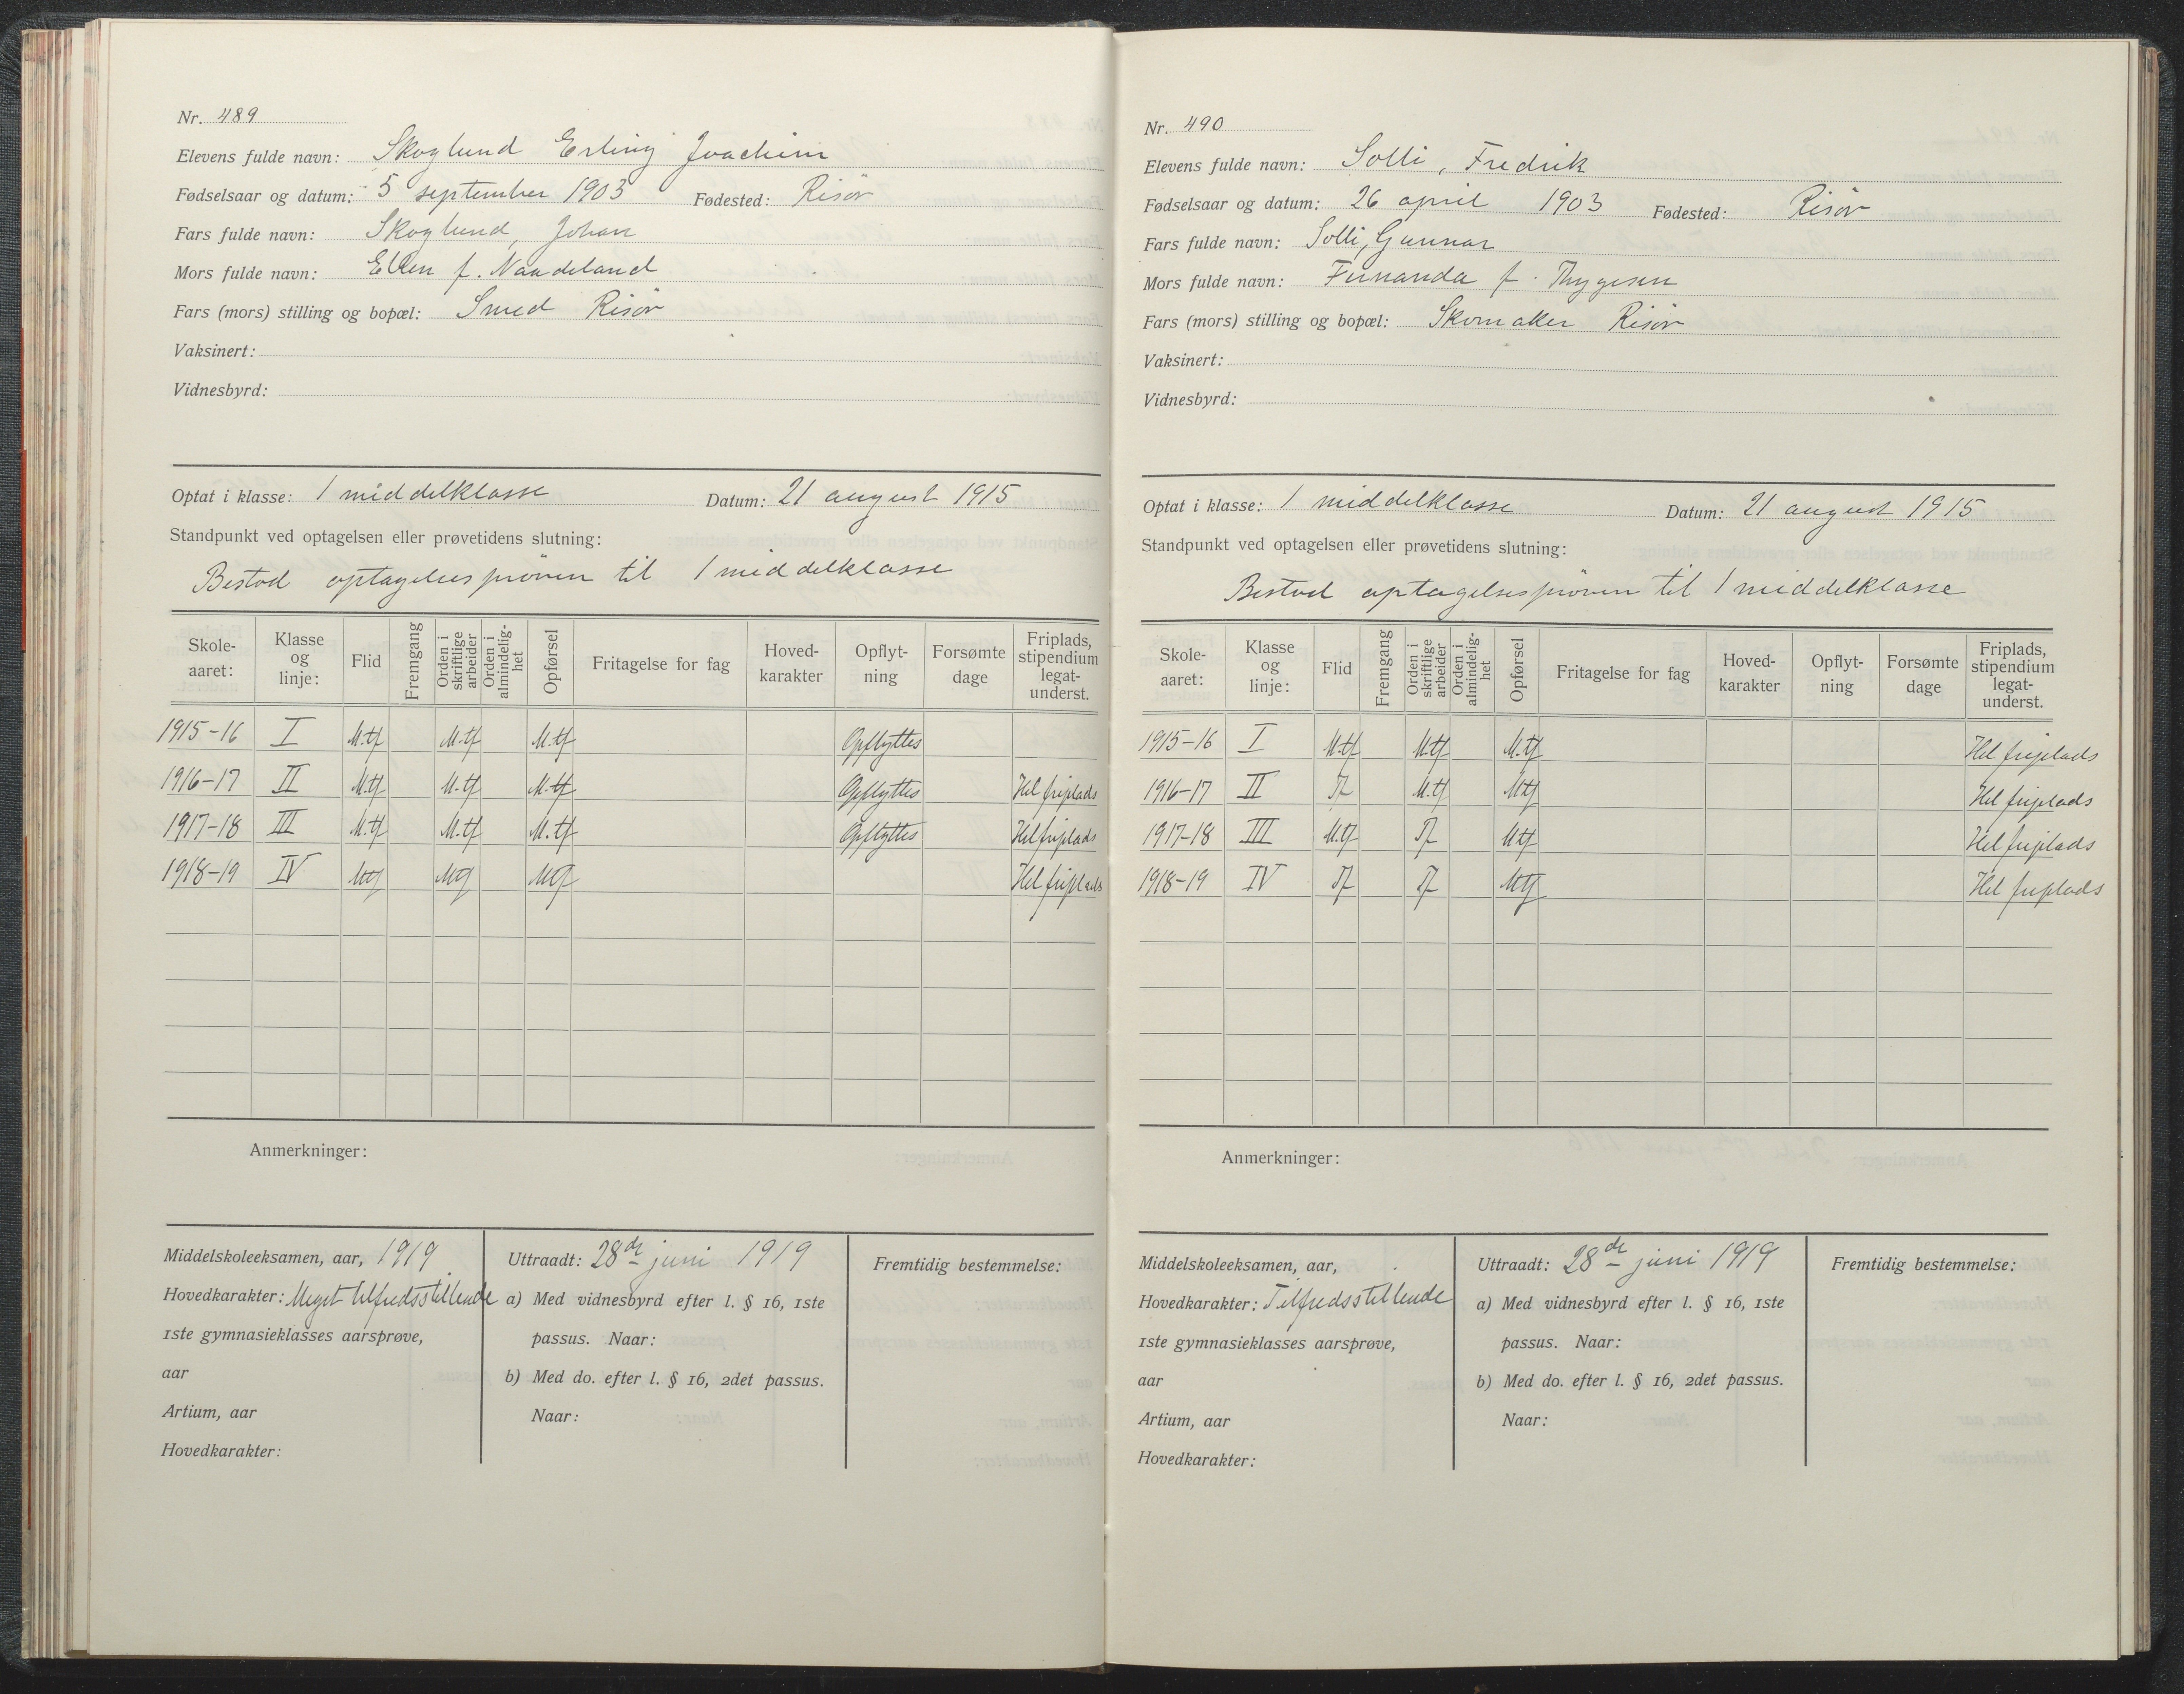 Nr. 489
Elevens fulde navn: Skoglund Erling Joachim
Fødselsaar og datum: 5 september 1903 Fødested: Risör
Fars fulde navn: Skoglund, Johan
Mors fulde navn: Ellen f. Naadeland
Fars (mors) stilling og bopæl: Smed Risör
Vaksinert:
Vidnesbyrd:
Optat i klasse: 1 middelklasse Datum: 21 august 1915
Standpunkt ved optagelsen eller prøvetidens slutning:
Bestod optagelsesprøven til 1 middelklasse
Skole-aaret: Klasse og linje: Flid Fremgang Orden i skriftlige arbeider Orden i almindelig-het Opførsel Fritagelse for fag Hoved-karakter Opflyt-ning Forsømte dage Friplads, stipendium legat-underst.
1915-16 I M.tf M.tf M.tf Opflyttes
1916-17 II M.tf M.tf M.tf Opflyttes Hel friplads
1917-18 III M.tf M.tf M.tf Opflyttes Hel friplads
1918-19 IV Mtf Mtf Mtf Hel friplads
Anmerkninger:
Middelskoleeksamen, aar, 1919
Hovedkarakter: Meget tilfredsstillende
1ste gymnasieklasses aarsprøve,
aar
Artium, aar
Hovedkarakter:
Uttraadt: 28de juni 1919
a) Med vidnesbyrd efter l. § 16, 1ste
passus. Naar:
b) Med do. efter l. § 16, 2det passus.
Naar:
Fremtidig bestemmelse:
Nr. 490
Elevens fulde navn: Solli, Fredrik
Fødselsaar og datum: 26 april 1903 Fødested: Risör
Fars fulde navn: Solli, Gunnar
Mors fulde navn: Fernanda f. Thygesen
Fars (mors) stilling og bopæl: Skomaker Risör
Vaksinert:
Vidnesbyrd:
Optat i klasse: 1 middelklasse Datum: 21 august 1915
Standpunkt ved optagelsen eller prøvetidens slutning:
Bestod optagelsesprøven til 1 middelklasse
Skole-aaret: Klasse og linje: Flid Fremgang Orden i skriftlige arbeider Orden i almindelig-het Opførsel Fritagelse for fag Hoved-karakter Opflyt-ning Forsømte dage Friplads, stipendium legat-underst.
1915-16 I M.tf M.tf M.tf Hel friplads
1916-17 II Tf M.tf Mtf Hel friplads
1917-18 III M.tf Tf Mtf Hel friplads
1918-19 IV Tf Tf Mtf Hel friplads
Anmerkninger:
Middelskoleeksamen, aar,
Hovedkarakter: Tilfredsstillende
1ste gymnasieklasses aarsprøve,
aar
Artium, aar
Hovedkarakter:
Uttraadt: 28de juni 1919
a) Med vidnesbyrd efter l. § 16, 1ste
passus. Naar:
b) Med do. efter l. § 16, 2det passus.
Naar:
Fremtidig bestemmelse: